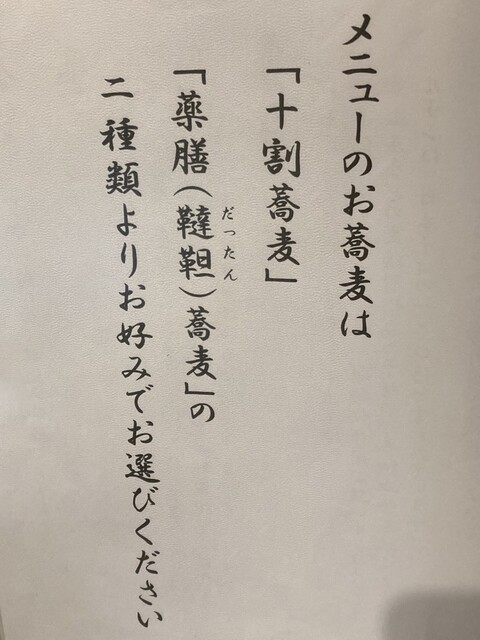 メニューのお蕎麦は
「十割蕎麦」
「薬膳(韃靼)蕎麦」の
だったん
二種類よりお好みでお選びください